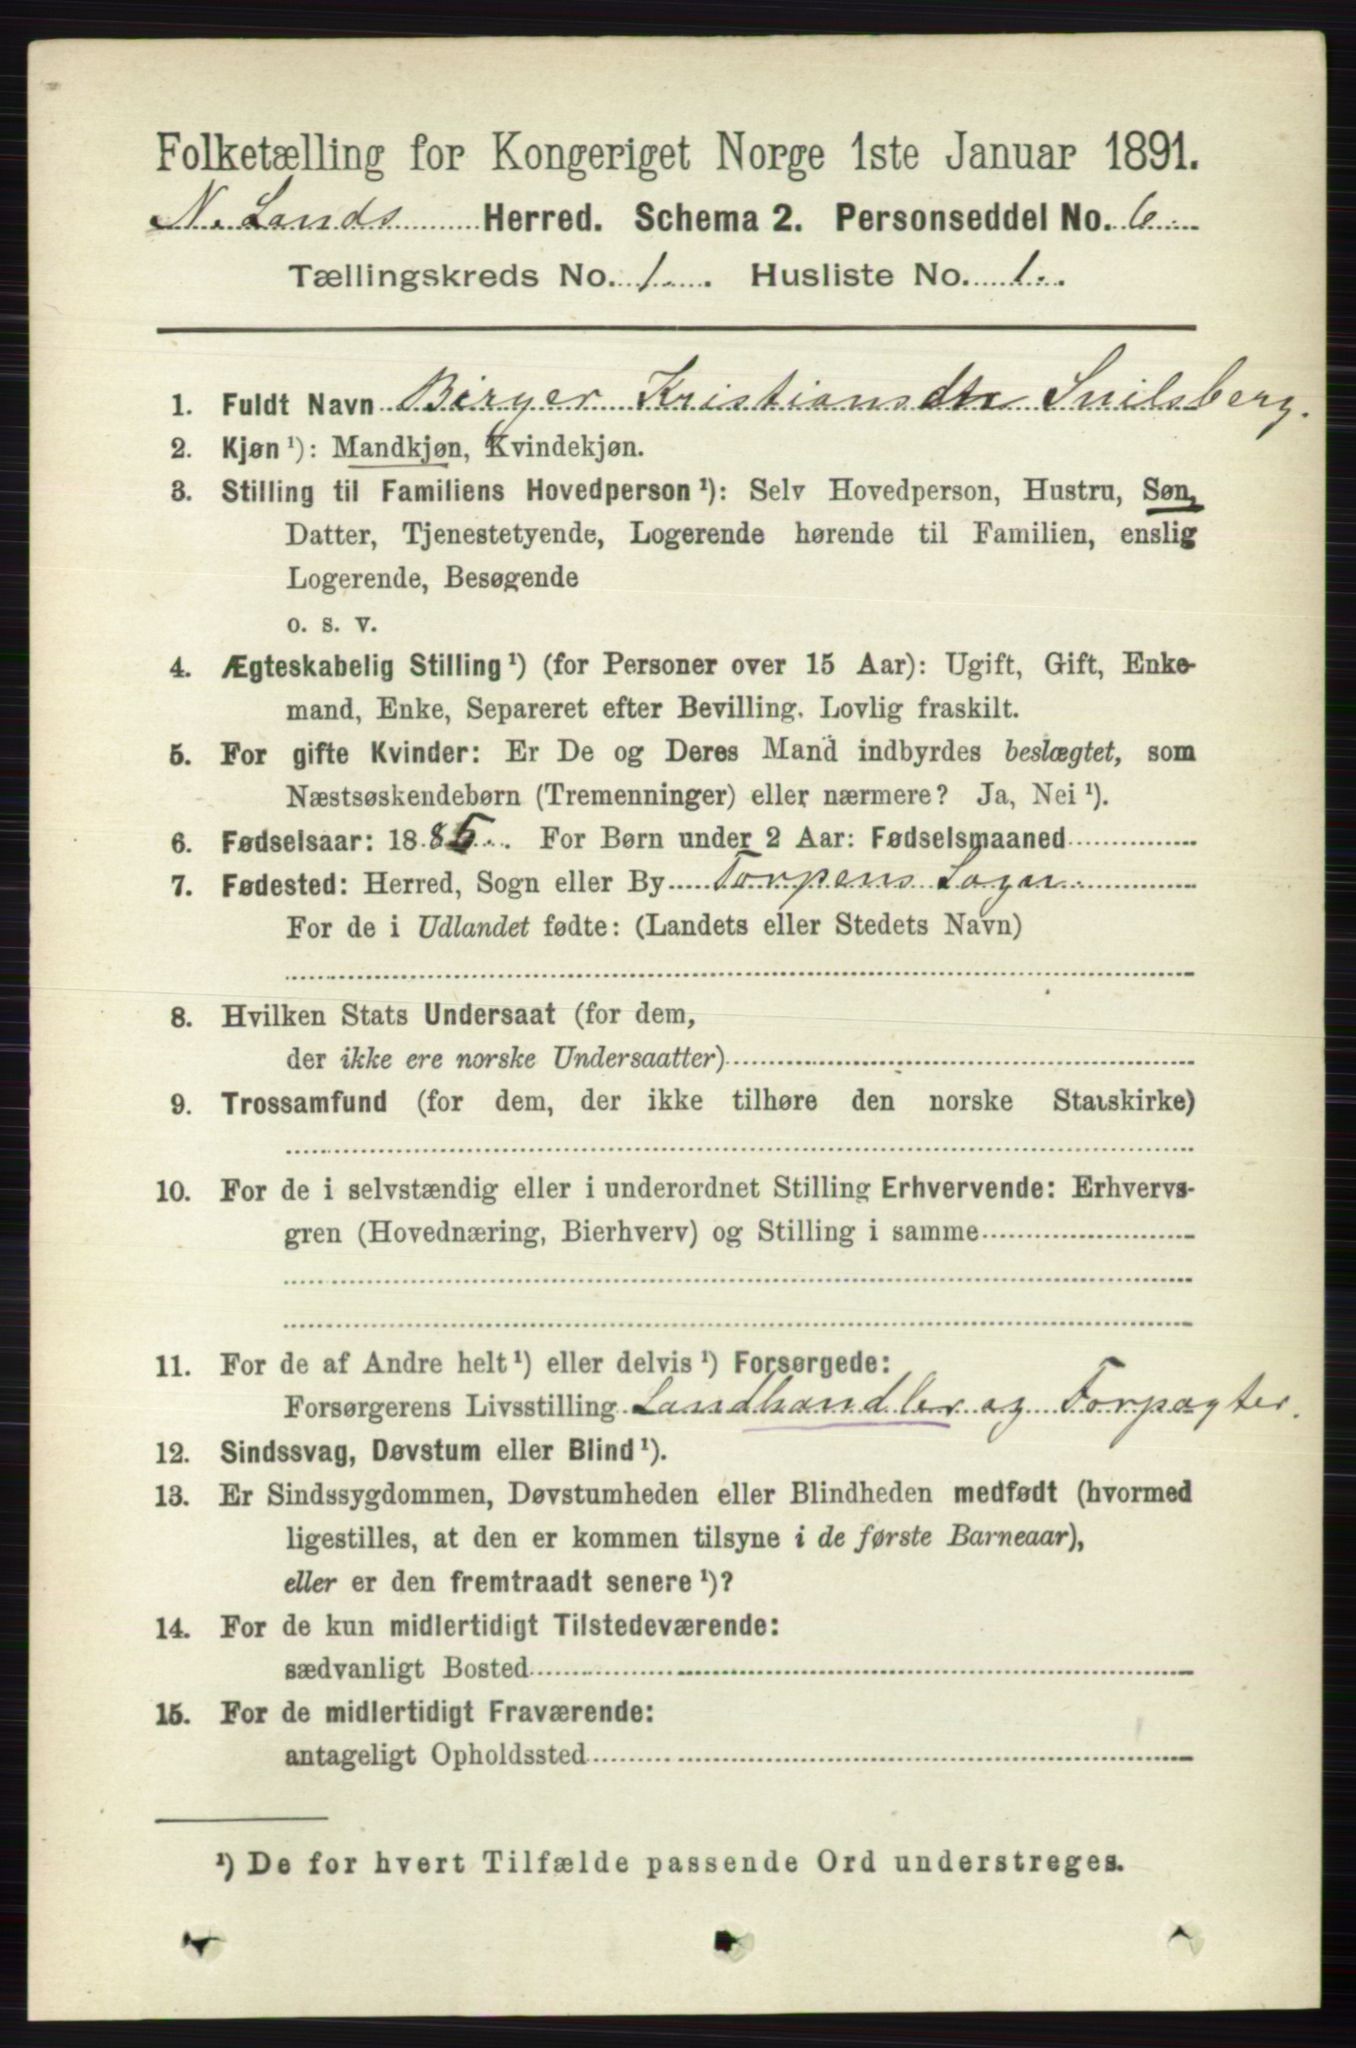 Folketælling for Kongeriget Norge 1ste Januar 1891.
N. Lands Herred. Schema 2. Personseddel No. 6.
Tællingskreds No. 1. Husliste No. 1.
1. Fuldt Navn Birger Kristians Snilsberg.
2. Kjøn ¹): Mandkjøn, Kvindekjøn.
3. Stilling til Familiens Hovedperson ¹): Selv Hovedperson, Hustru, Søn,
Datter, Tjenestetyende, Logerende hørende til Familien, enslig
Logerende, Besøgende
o. s. v.
4. Ægteskabelig Stilling ¹) (for Personer over 15 Aar): Ugift, Gift, Enke-
mand, Enke, Separeret efter Bevilling. Lovlig fraskilt.
5. For gifte Kvinder: Er De og Deres Mand indbyrdes beslægtet, som
Næstsøskendebørn (Tremenninger) eller nærmere? Ja, Nei ¹).
6. Fødselsaar: 1885. For Børn under 2 Aar: Fødselsmaaned
7. Fødested: Herred, Sogn eller By Torpens Sogn
For de i Udlandet fødte: (Landets eller Stedets Navn)
8. Hvilken Stats Undersaat (for dem,
der ikke ere norske Undersaatter)
9. Trossamfund (for dem, der ikke tilhøre den norske Statskirke)
10. For de i selvstændig eller i underordnet Stilling Erhvervende: Erhvervs-
gren (Hovednæring, Bierhverv) og Stilling i samme
11. For de af Andre helt ¹) eller delvis ¹) Forsørgede:
Forsørgerens Livsstilling Landhandler og Forpagter.
12. Sindssvag, Døvstum eller Blind ¹).
13. Er Sindssygdommen, Døvstumheden eller Blindheden medfødt (hvormed
ligestilles, at den er kommen tilsyne i de første Barneaar),
eller er den fremtraadt senere ¹)?
14. For de kun midlertidigt Tilstedeværende:
sædvanligt Bosted
15. For de midlertidigt Fraværende:
antageligt Opholdssted
¹) De for hvert Tilfælde passende Ord understreges.